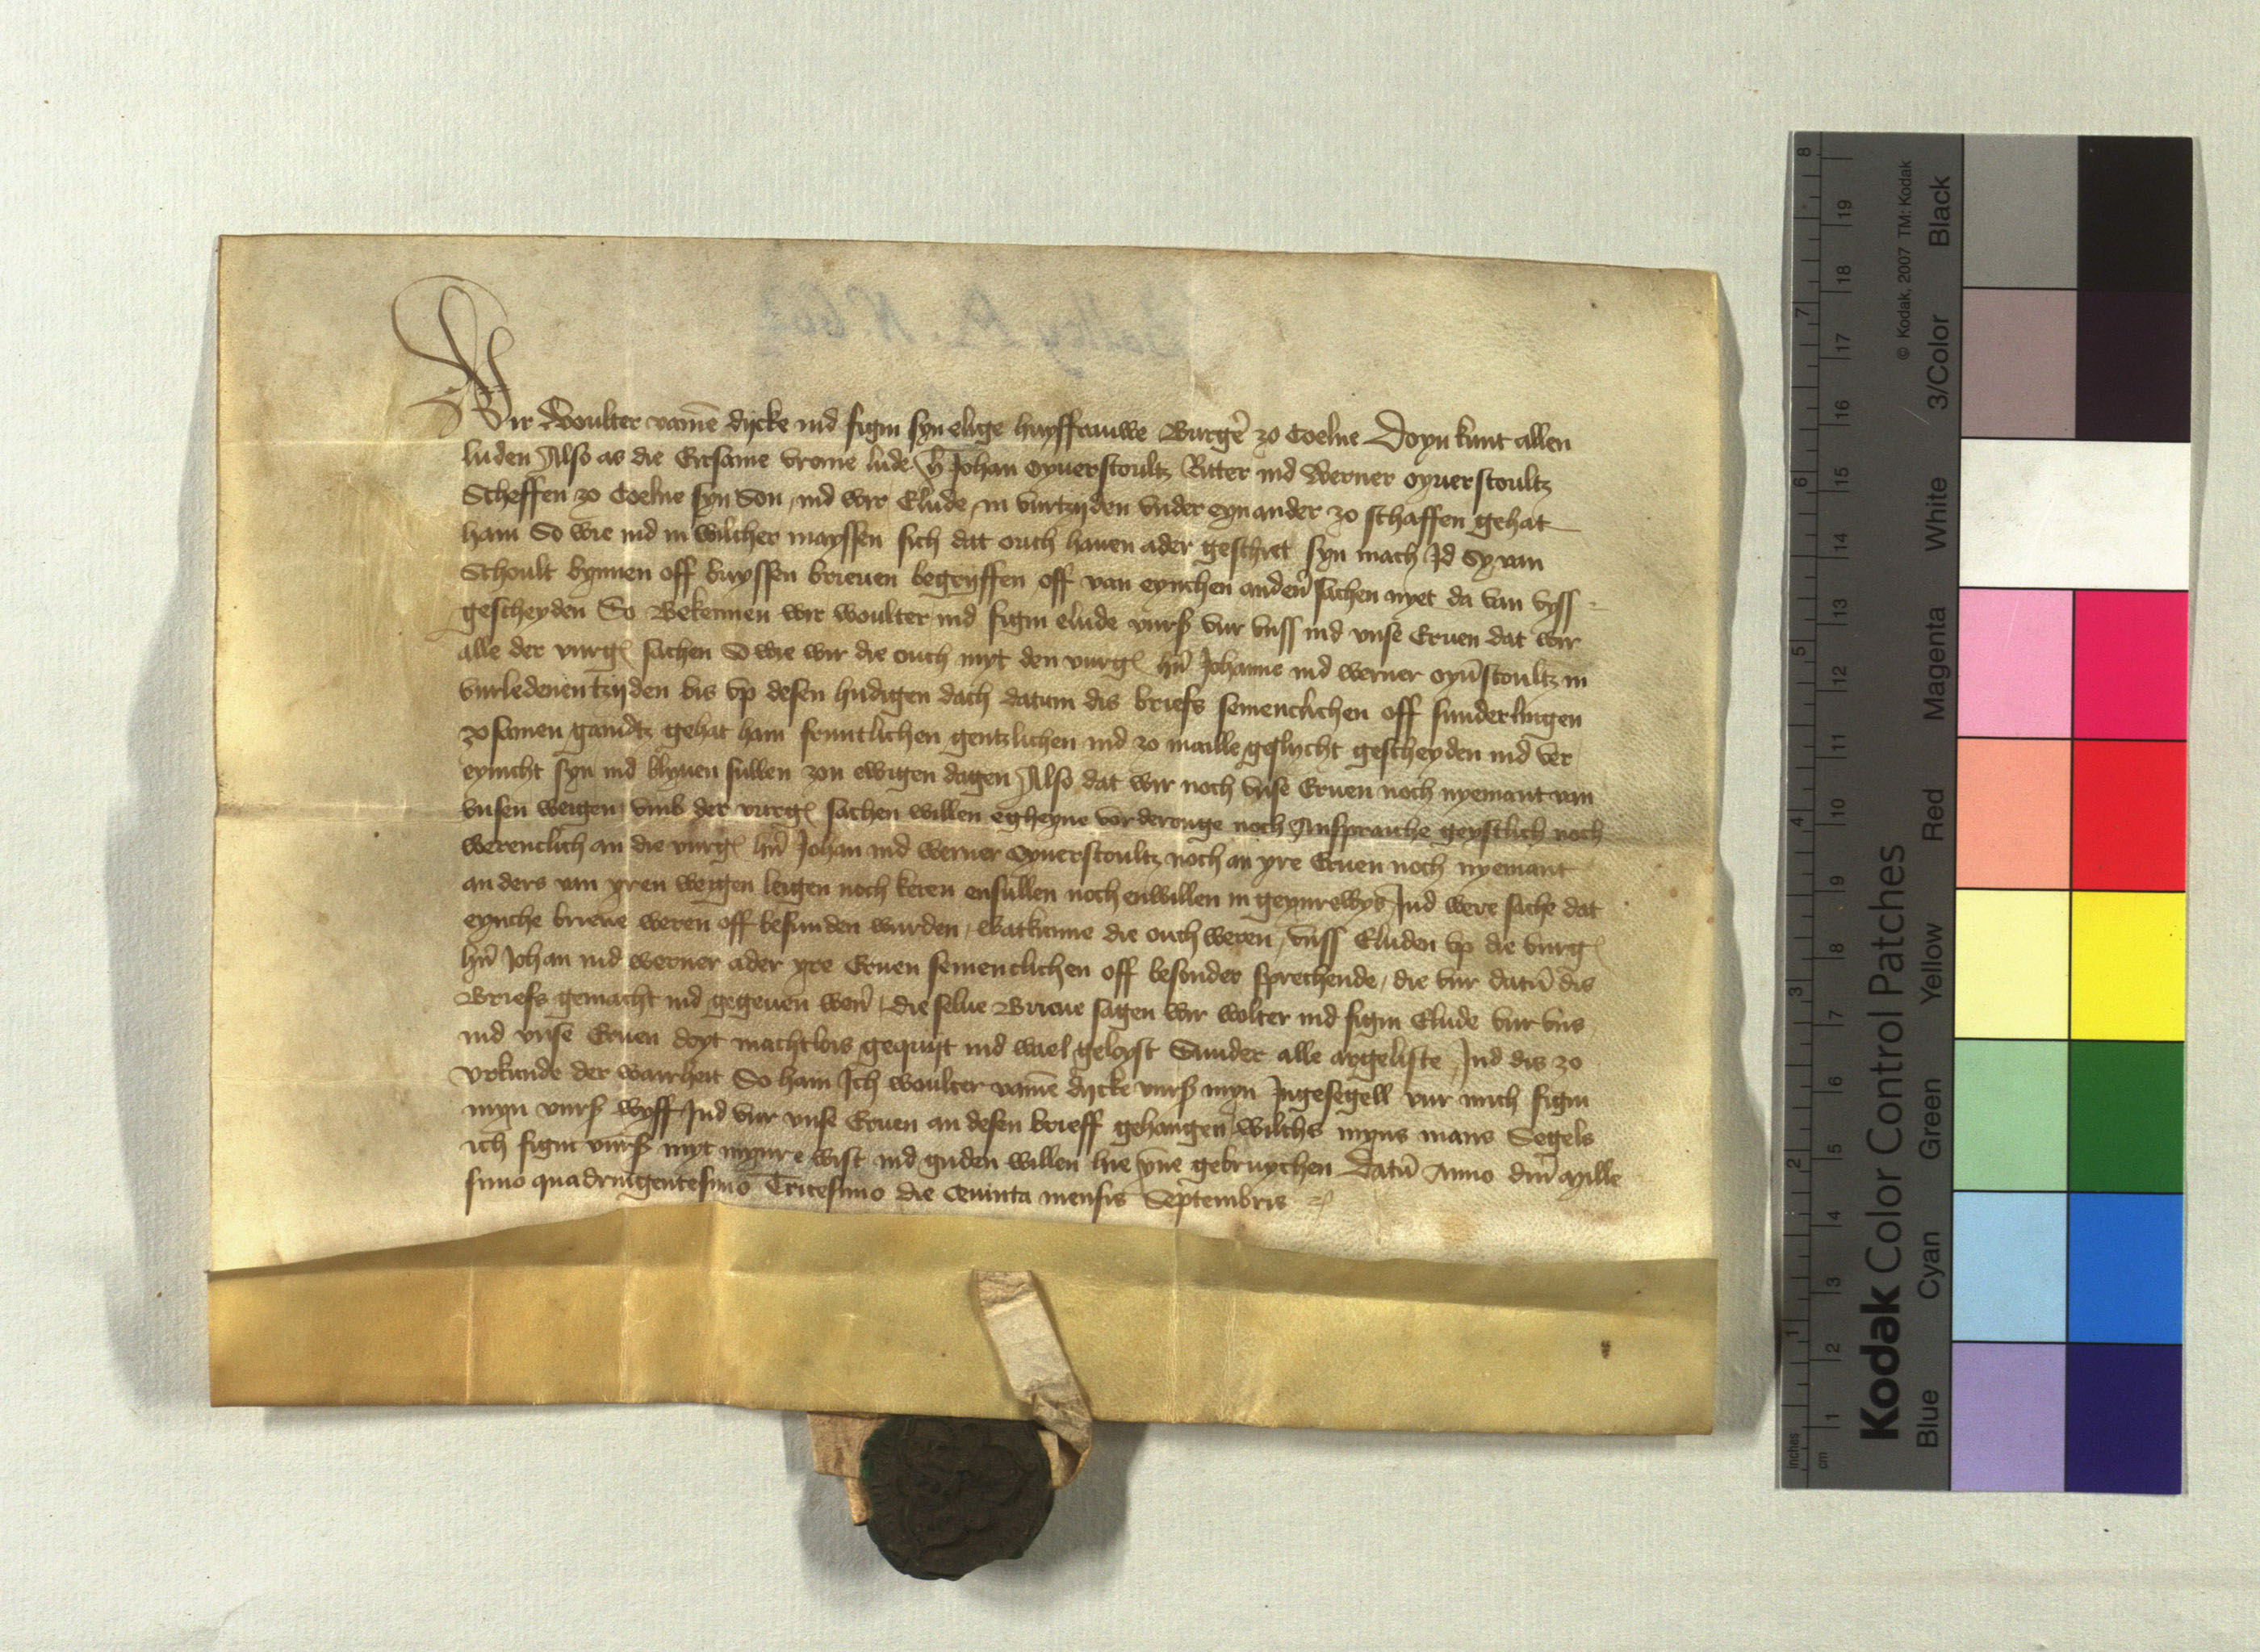 Wir Woulter vamē dycke ind figin syn elige huysfrauwe Burgẽ zo Coelne Doyn kunt allen
luden Also as die Eirsame vrome lude h̃ Johan ouerstoultz Ritter ind Werner ouerstoultz
Scheffen zo Coelne syn Son ind wir Elude in vurtzyden vnder eynander zo schaffen gehat
hain So wie ind in wilcher mayssen sich dat ouch hauen ader geschiet syn mach Id sy van
Schoult bynnen off buyssen brieuen begryffen off van eynchen anderñ sachen nyet da van vyss
gescheyden So Bekennen wir woulter ind figin elude vurß vur vnss ind vnse Eruen dat wir
alle der vurgͨ sachen So wie wir die ouch myt den vurgͨ hñ Johanne ind werner oyũstoultz in
vurledenen tzyden bis vp desen hudigen dach datum dis briefs sementlichen off sunderlingen
zosamen gehat hain fruntlichen gentzlichen ind zo maille geslycht gescheyden ind ver
eynicht syn ind blyuen sullen zon ewigen dagen Also dat wir noch vnse Eruen noch nyemant van
vnsen weigen vmb der vurgͨ sachen willen egheyne vorderonge noch Ansprauche geystlich noch
werentlich an die vurgͨ hñ Johan ind werner Oyuerstoultz noch an yre Eruen noch nyemant
anders van yren weigen leigen noch keren ensullen noch enwillen in geynrewys Ind were sache dat
eynche brieue weren off befunden wurden, watkunne die ouch weren, vnss Eluden vp die vurgͨ
hñ Johan ind werner ader yre Eruen sementlichen off besonder sprechende, die vur datũ dis
Briefs gemacht ind gegeuen werñ, die selue Brieue sagen wir wolter ind figin Elude vur vns
ind vnse Eruen doyt machtlois gequyt ind wael geloyst Sunder alle argeliste, Ind dis zo
vrkunde der wairheit So hain Ich woulter vamē dycke vurß myn Ingesegell vur mich figin
myn vurß wyff Ind vur vnse Eruen an desen brieff gehangen, wilchs myns mans Segels
ich figin vurß myt mynre wist ind guden willen hie ynne gebruychen Datũ Anno dm̃ Mille
simo quadringentesimo Tricesimo die Quinta mensis Septembris
Kodak Color Control Patches
© Kodak, 2007 TM: Kodak
Blue Cyan Green Yellow Red Magenta White 3/Color Black
inches 1 2 3 4 5 6 7 8
cm 1 2 3 4 5 6 7 8 9 10 11 12 13 14 15 16 17 18 19